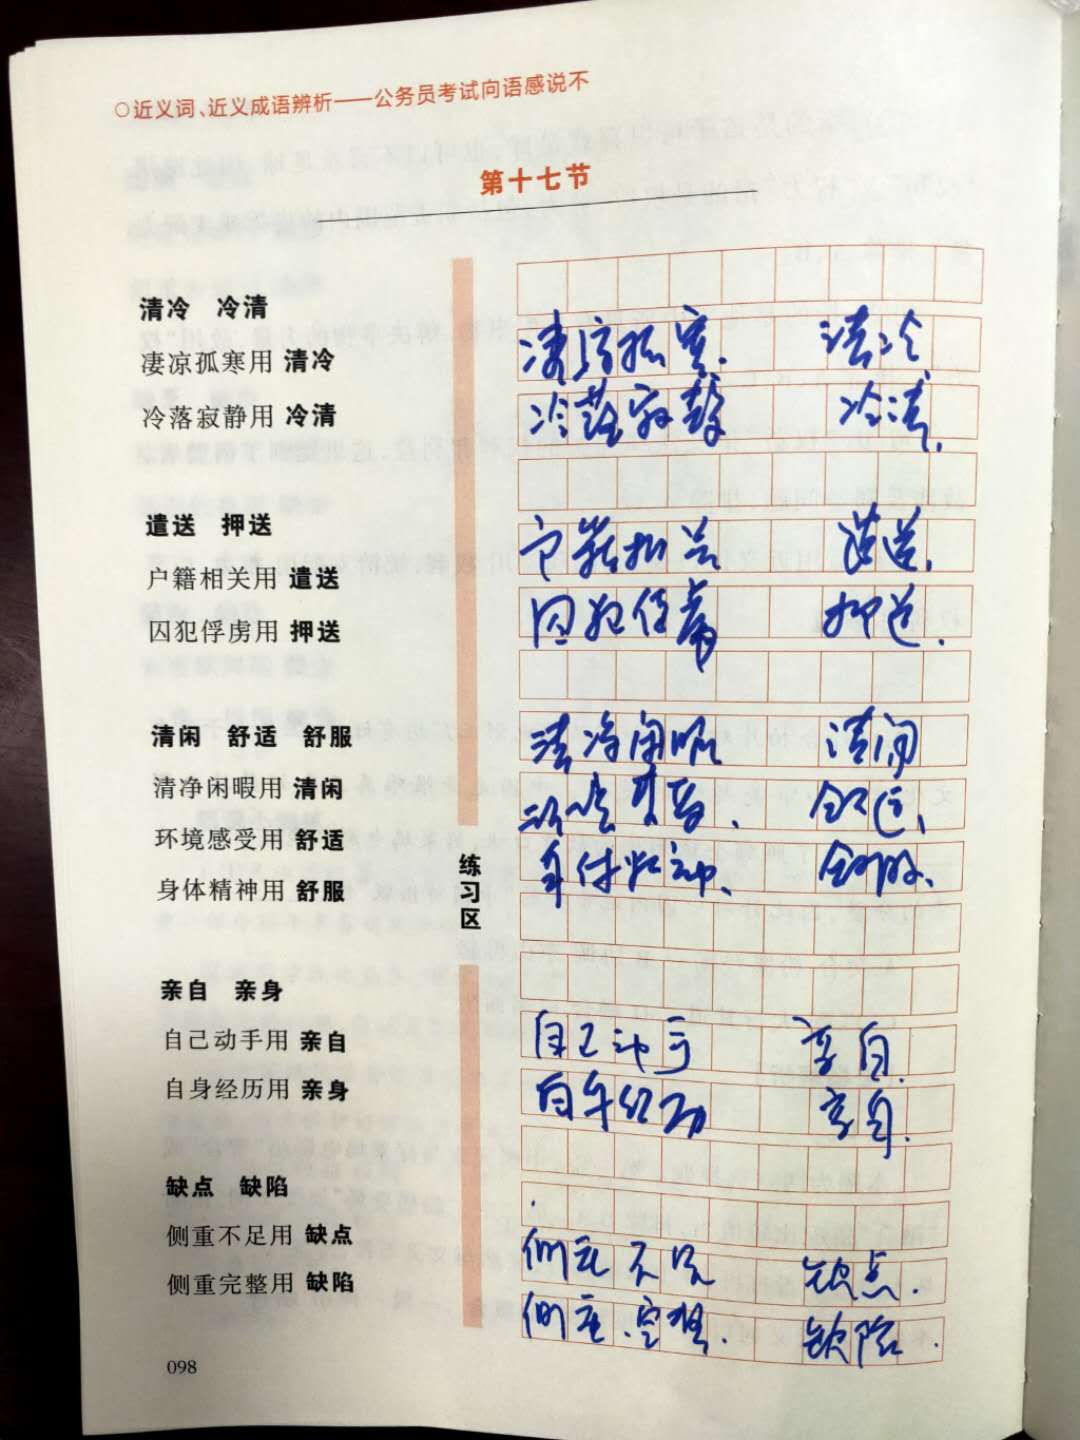 ○近义词、近义成语辨析——公务员考试向语感说不
第十七节
清冷 冷清
凄凉孤寒用 清冷 凄凉孤寒. 清冷
冷落寂静用 冷清 冷落寂静 冷清.
遣送 押送
户籍相关用 遣送 户籍相关 遣送.
囚犯俘虏用 押送 囚犯俘虏 押送.
清闲 舒适 舒服
清净闲暇用 清闲 清净闲暇 清闲
环境感受用 舒适 舒适、
身体精神用 舒服 身体精神、 舒服、
练习区
亲自 亲身
自己动手用 亲自 自己动手 亲自.
自身经历用 亲身 自身经历 亲身.
缺点 缺陷
侧重不足用 缺点 侧重不足 缺点.
侧重完整用 缺陷 侧重完整. 缺陷.
098